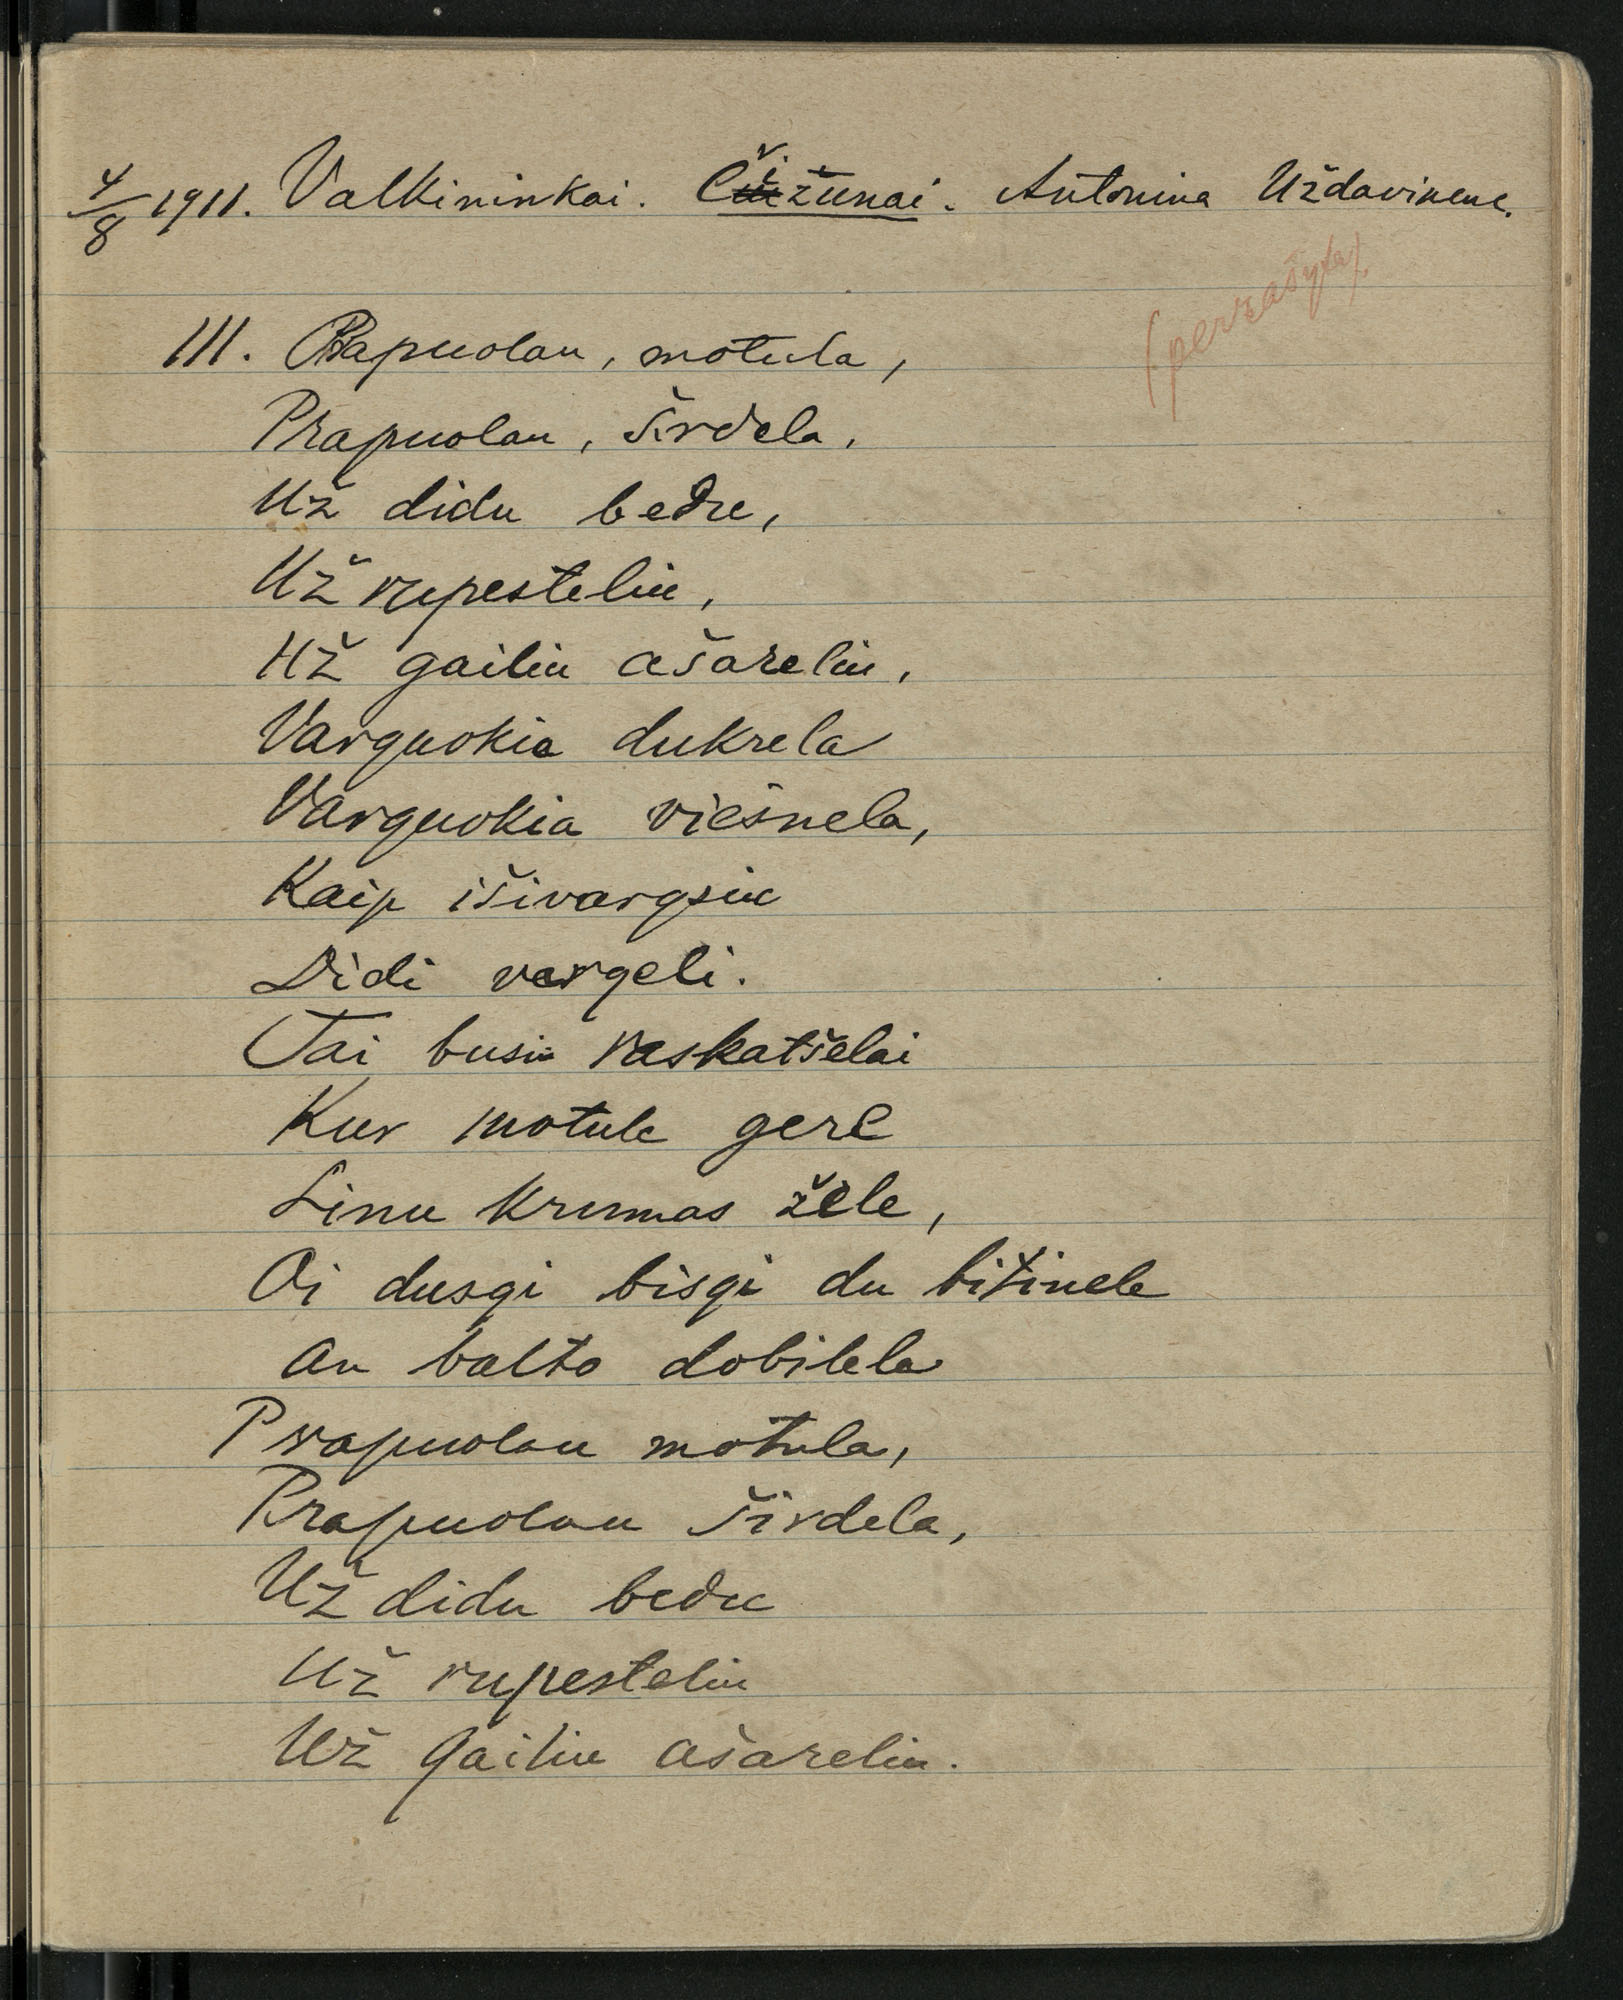 4/8 1911. Valkininkai. Čižunai. Antonina Uždavinene.
(perrašyta)
III. Prapuolau, motula,
Prapuolau, širdela,
Už didu bedu,
Už rupesteliu,
Už gailiu ašareliu,
Varguokia dukrela
Varguokia viešnela,
Kaip išivargsiu
Didi vargeli.
Tai busiu raskatšelai
Kur motule gere
Linu krumas žele,
Oi dusgi bisgi du bitinele
An balto dobilela
Prapuolau motula,
Prapuolau širdela,
Už didu bedu
Už rupesteliu
Už gailiu ašareliu.